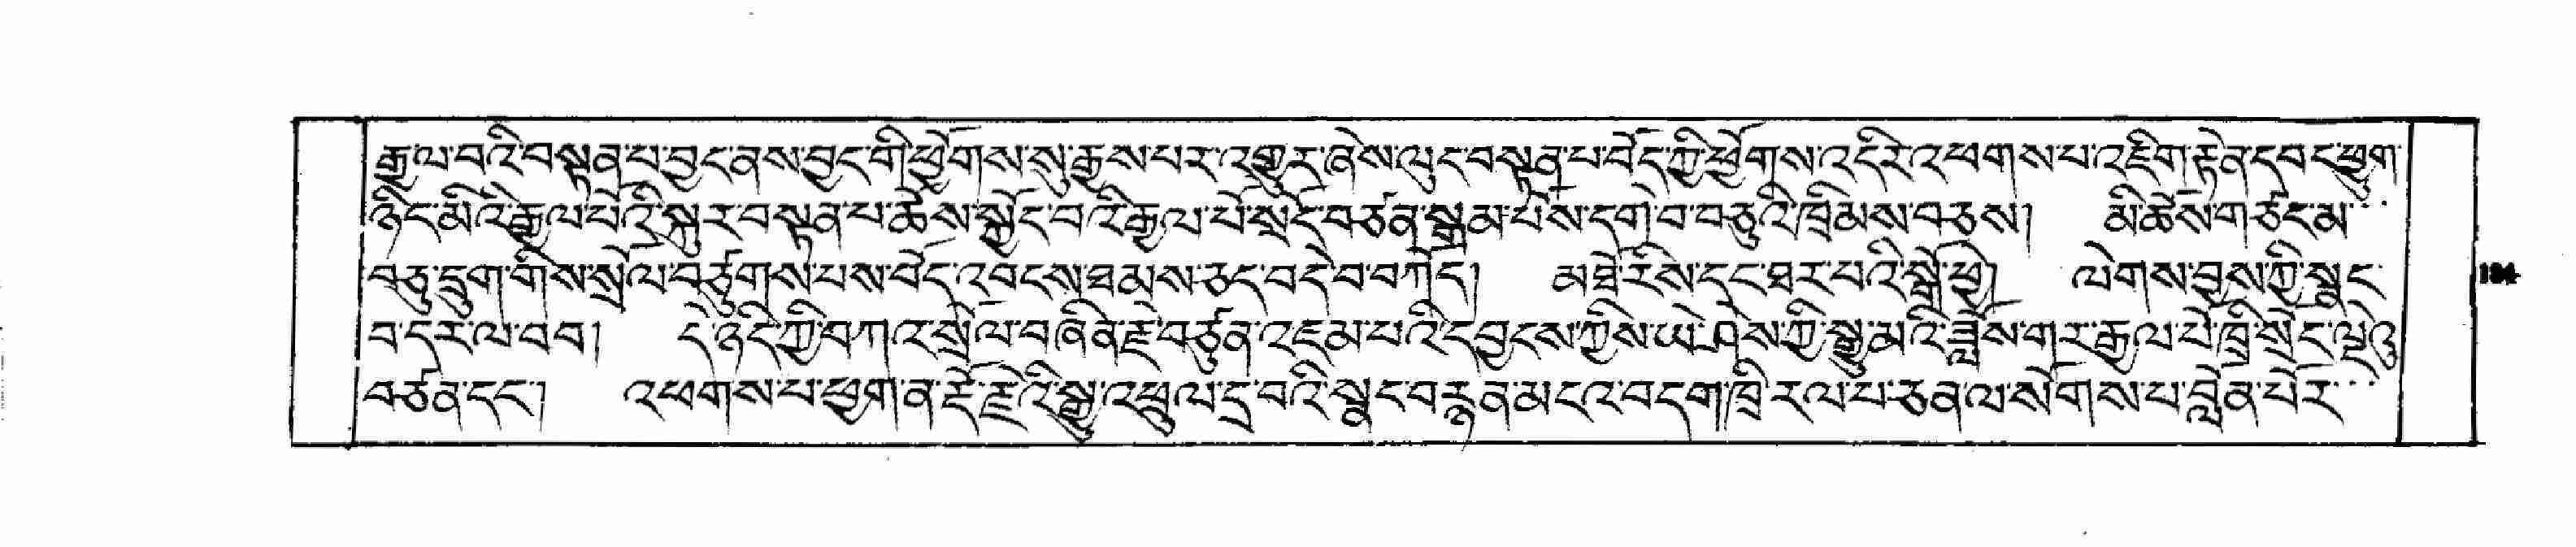 རྒྱལ་བའི་བསྟན་པ་བྱང་ནས་བྱང་གི་ཕྱོགས་སུ་རྒྱས་པར་འགྱུར་ཞེས་ལུང་བསྟན་པ་བོད་ཀྱི་ཕྱོགས་འདིར་འཕགས་པ་འཇིག་རྟེན་དབང་ཕྱུག་
ཉིད་མིའི་རྒྱལ་པོའི་སྐུར་བསྟན་པ་ཆོས་སྐྱོང་བའི་རྒྱལ་པོ་སྲོང་བཙན་སྒམ་པོས་དགེ་བ་བཅུའི་ཁྲིམས་བཅས། མི་ཆོས་གཙང་མ་
བཅུ་དྲུག་གིས་སྲོལ་བཙུགས་པས་བོད་འབངས་ཐམས་ཅད་བདེ་བ་བཀོད། མཐོ་རིས་དང་ཐར་པའི་སྒོ་ཕྱེ། ལེགས་བྱས་ཀྱི་སྣང་
བ་དར་ལ་བབ། དེ་ཉིད་ཀྱི་བཀའ་སྲོལ་བཞིན་རྗེ་བཙུན་འཇམ་པའི་དབྱངས་ཀྱིས་ཡེ་ཤེས་ཀྱི་སྒྱུ་མའི་ཟློས་གར་རྒྱལ་པོ་ཁྲི་སྲོང་ལྡེའུ་
བཙན་དང་། འཕགས་པ་ཕྱག་ན་རྡོ་རྗེའི་སྒྱུ་འཕྲུལ་དྲ་བའི་སྣང་བརྙན་མངའ་བདག་ཁྲི་རལ་པ་ཅན་ལ་སོགས་པ་བློན་པོར་
184